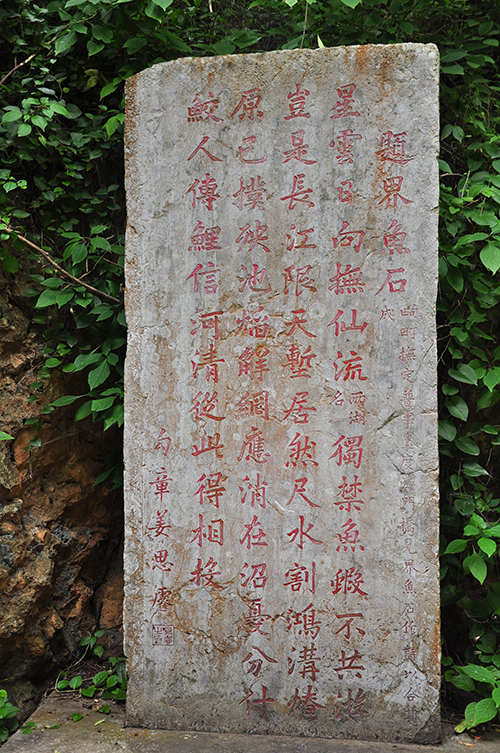 題界魚石
見界魚石作
星雲日向撫仙流兩湖名獨禁魚蝦不共游
豈是長江限天塹居然尺水割鴻溝
原已撲殃池焰解網應消在沼憂分付
鮫人傳鯉信河清從此得相投
句章姜思睿